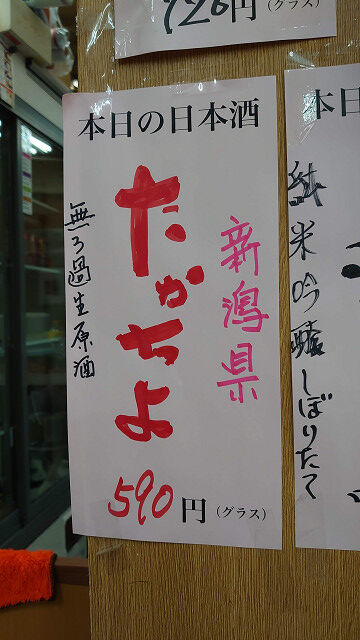 720円(グラス)
本日の日本酒
新潟県
たかちよ
無ろ過生原酒
590円(グラス)
本日
純米吟醸しぼりたて